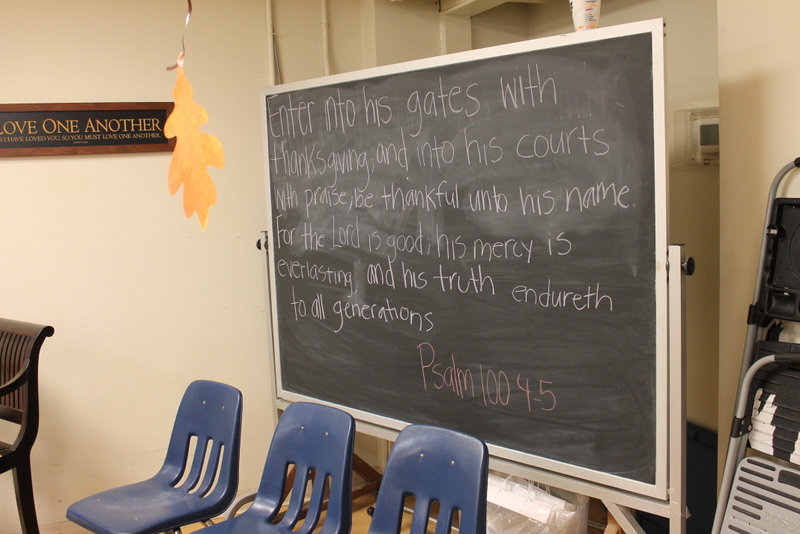 LOVE ONE ANOTHER
I HAVE LOVED YOU, SO YOU MUST LOVE ONE ANOTHER.
Enter into his gates with
thanksgiving, and into his courts
with praise; be thankful unto his name.
For the Lord is good; his mercy is
everlasting and his truth endureth
to all generations
Psalm 100 4-5